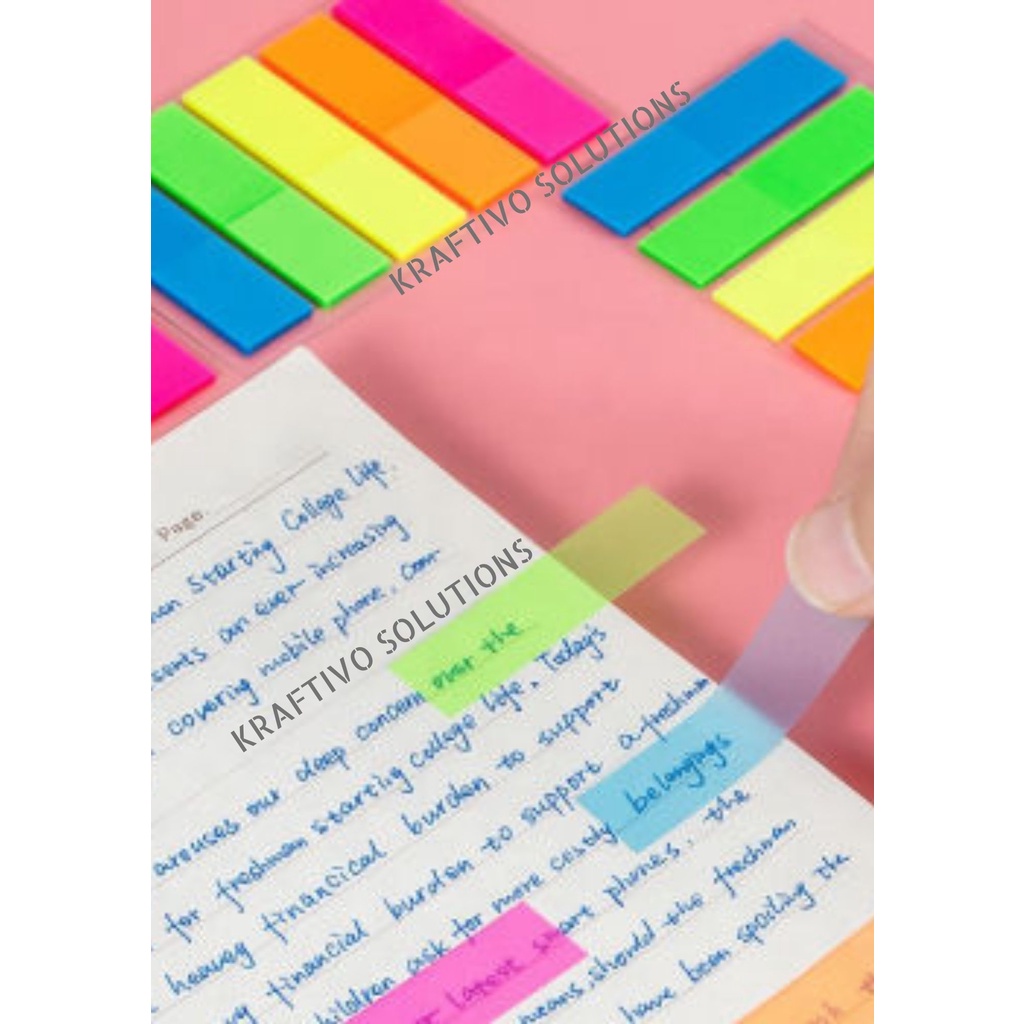 KRAFTIVO SOLUTIONS
Page.
Starting College life.
an ever increasing
covering mobile phone, com-
KRAFTIVO SOLUTIONS
arouses our deep concern over the
for freshman startiig college life. Today's
heavey financical burden to support
financial burden to support a freshman
ask for more costly belongings
latest share phones. the
means, should the freshman
have been spoiling the